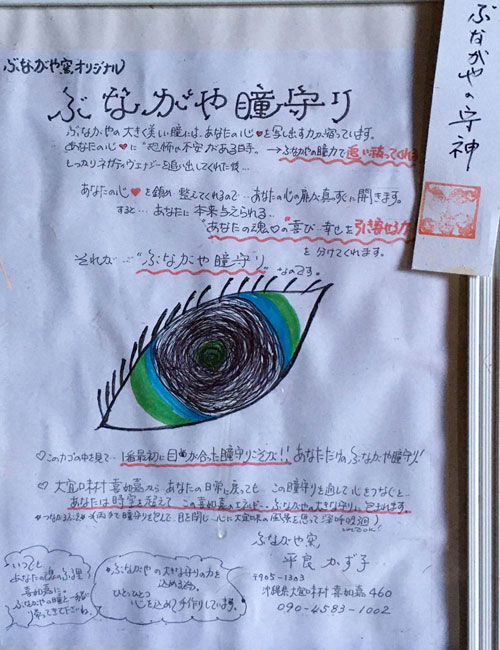 ぶながや窯オリジナル
ぶながや瞳守り
ぶながやの守神
ぶながやの大きく美しい瞳には、あなたの心♥を写し出す力が宿っています。
あなたの心♥に"恐怖や不安がある時。→ぶながやの瞳力で追い祓ってくれる
しっかりネガティヴェナジーを追い出してくれた後…
あなたの心♥を鎮め 整えてくれるので…あなたの心の扉が真っすぐに開きます。
すると…あなたに本来与えられる…
"あなたの魂♡の"喜び…幸せを引き寄せる力
を分けてくれます。
それが…"ぶながや瞳守り"なのです。
♡このカゴの中を見て…1番最初に目が合った瞳守りこそが!!あなただけのぶながや瞳守り!
♡大宜味村 喜如嘉から あなたの日常に戻っても この瞳守りを通して心をつなぐと…
あなたは時空を超えて この喜如嘉の
ぶながや窯
平良かず子
〒905-1303
沖縄県大宜味村喜如嘉460
090-4583-1002
いつでも
あなたの魂のふる里
喜如嘉に。
ぶながやの瞳と一緒に
帰ってきて下さいね。
*ぶながやの大きな守りの力を
込める為。
ひとつひとつ
心を込めて手作りしています。